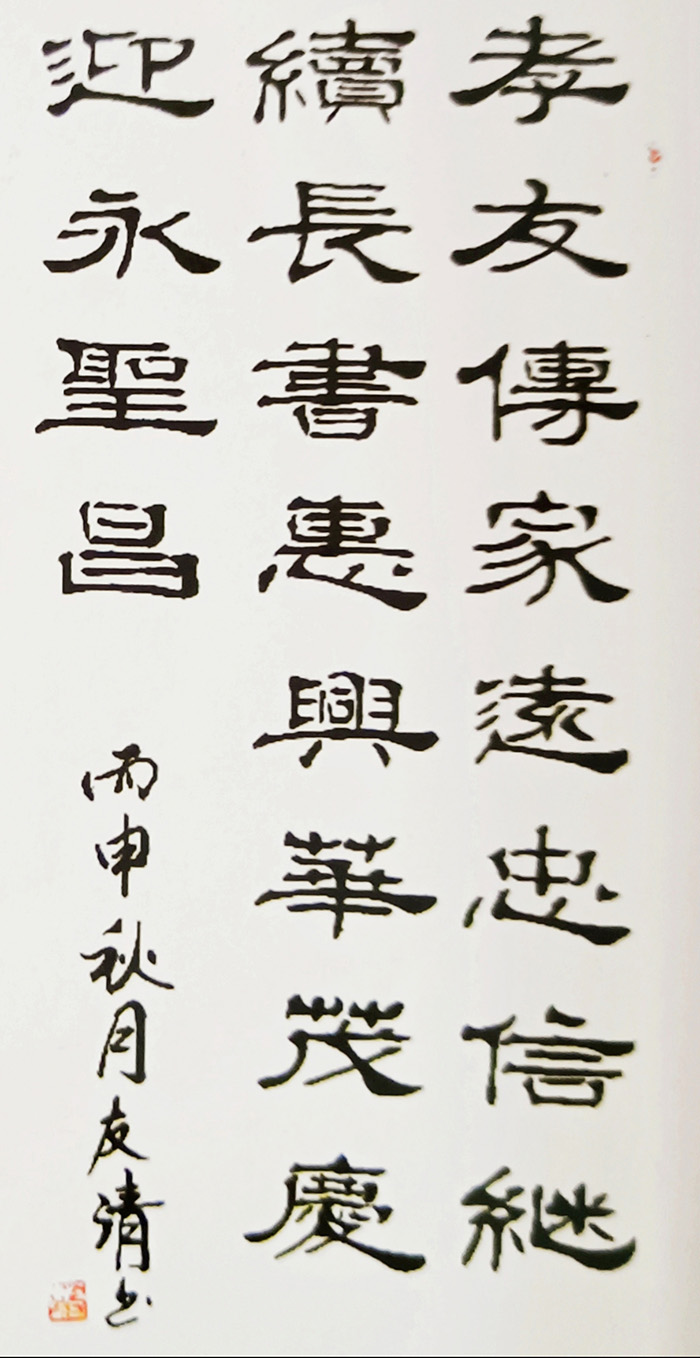 孝友傳家遠忠信継
續長書惠興華茂慶
迎永聖昌
丙申秋月友清书